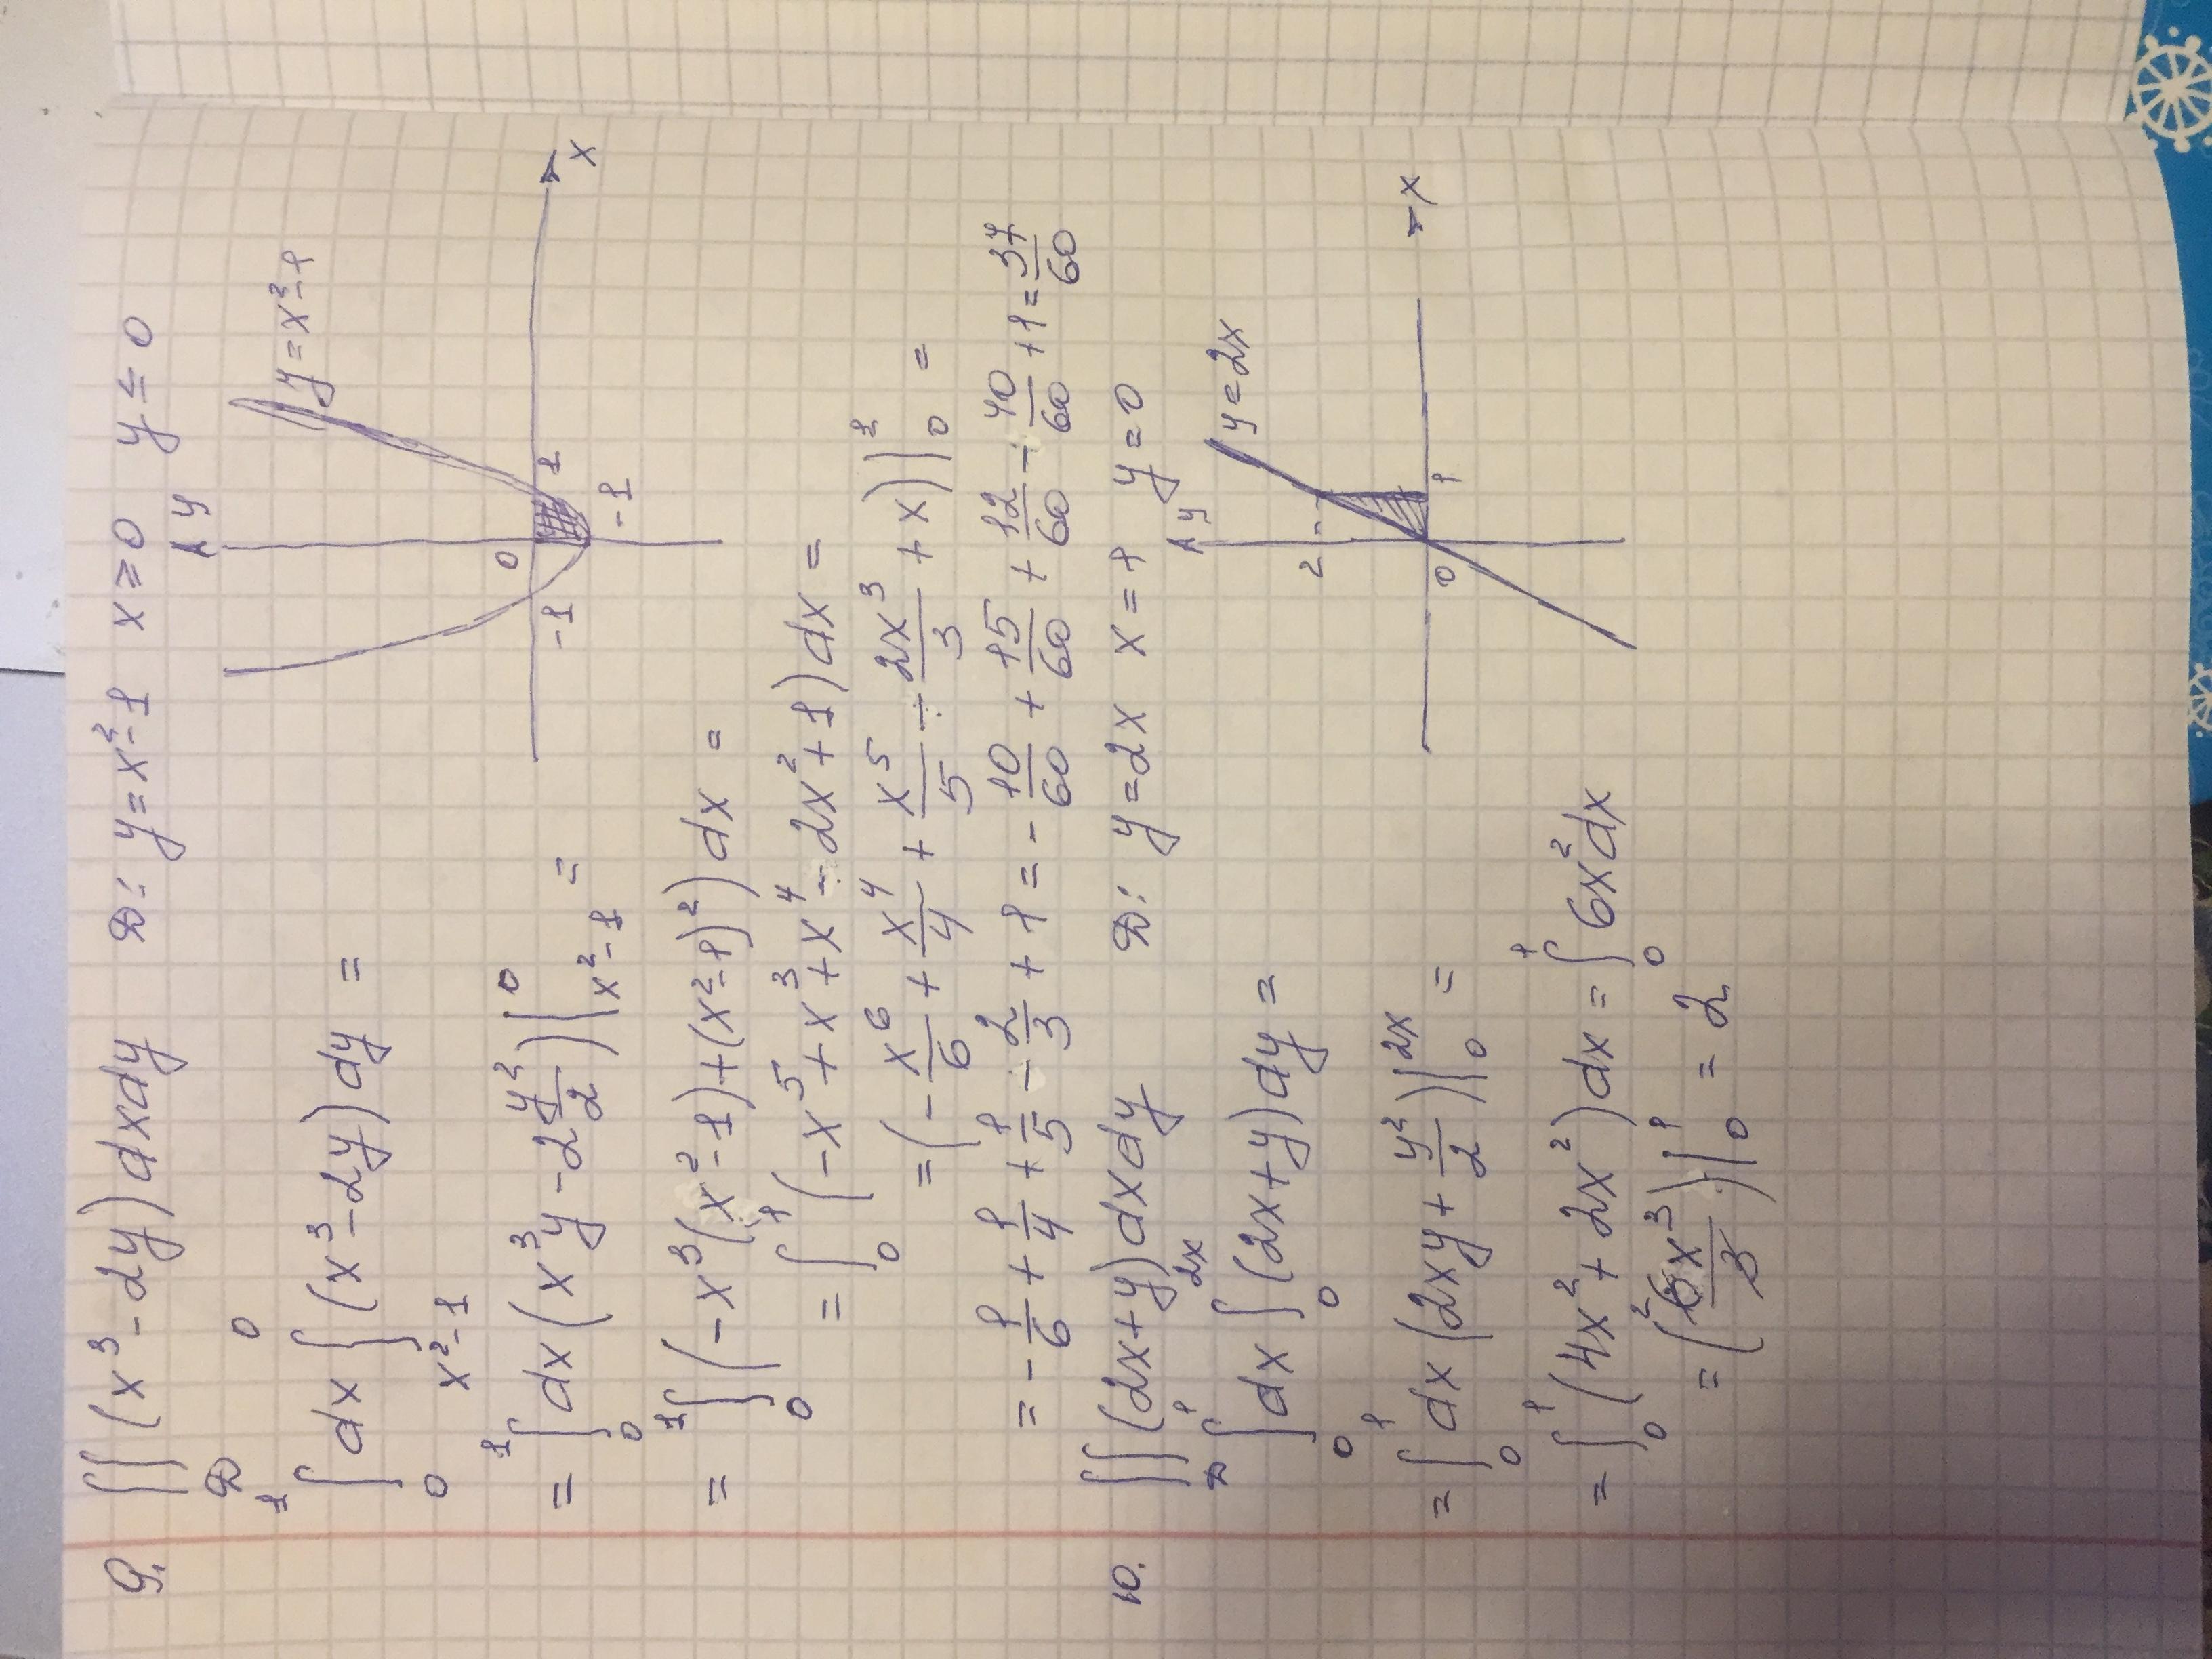 9. ∬ (x³ - 2y) dxdy   D: y = x² - 1   x ≥ 0   y ≤ 0
D
∫₀¹ dx ∫_{x²-1}^{0} (x³ - 2y) dy =
= ∫₀¹ dx (x³y - 2 y²/2) |_{x²-1}^{0} =
= ∫₀¹ (-x³(x² - 1) + (x² - 1)²) dx =
= ∫₀¹ (-x⁵ + x³ + x⁴ - 2x² + 1) dx =
= (- x⁶/6 + x⁴/4 + x⁵/5 - 2x³/3 + x) |₀¹ =
= - 1/6 + 1/4 + 1/5 - 2/3 + 1 = - 10/60 + 15/60 + 12/60 - 40/60 + 1 = 37/60
y
y = x² - 1
0
-1
1
-1
x
10. ∬ (2x + y) dxdy   D: y = 2x   x = 1   y = 0
D
∫₀¹ dx ∫₀^{2x} (2x + y) dy =
= ∫₀¹ dx (2xy + y²/2) |₀^{2x} =
= ∫₀¹ (4x² + 2x²) dx = ∫₀¹ 6x² dx
= (6x³/3) |₀¹ = 2
2
y
y = 2x
2
0
1
x